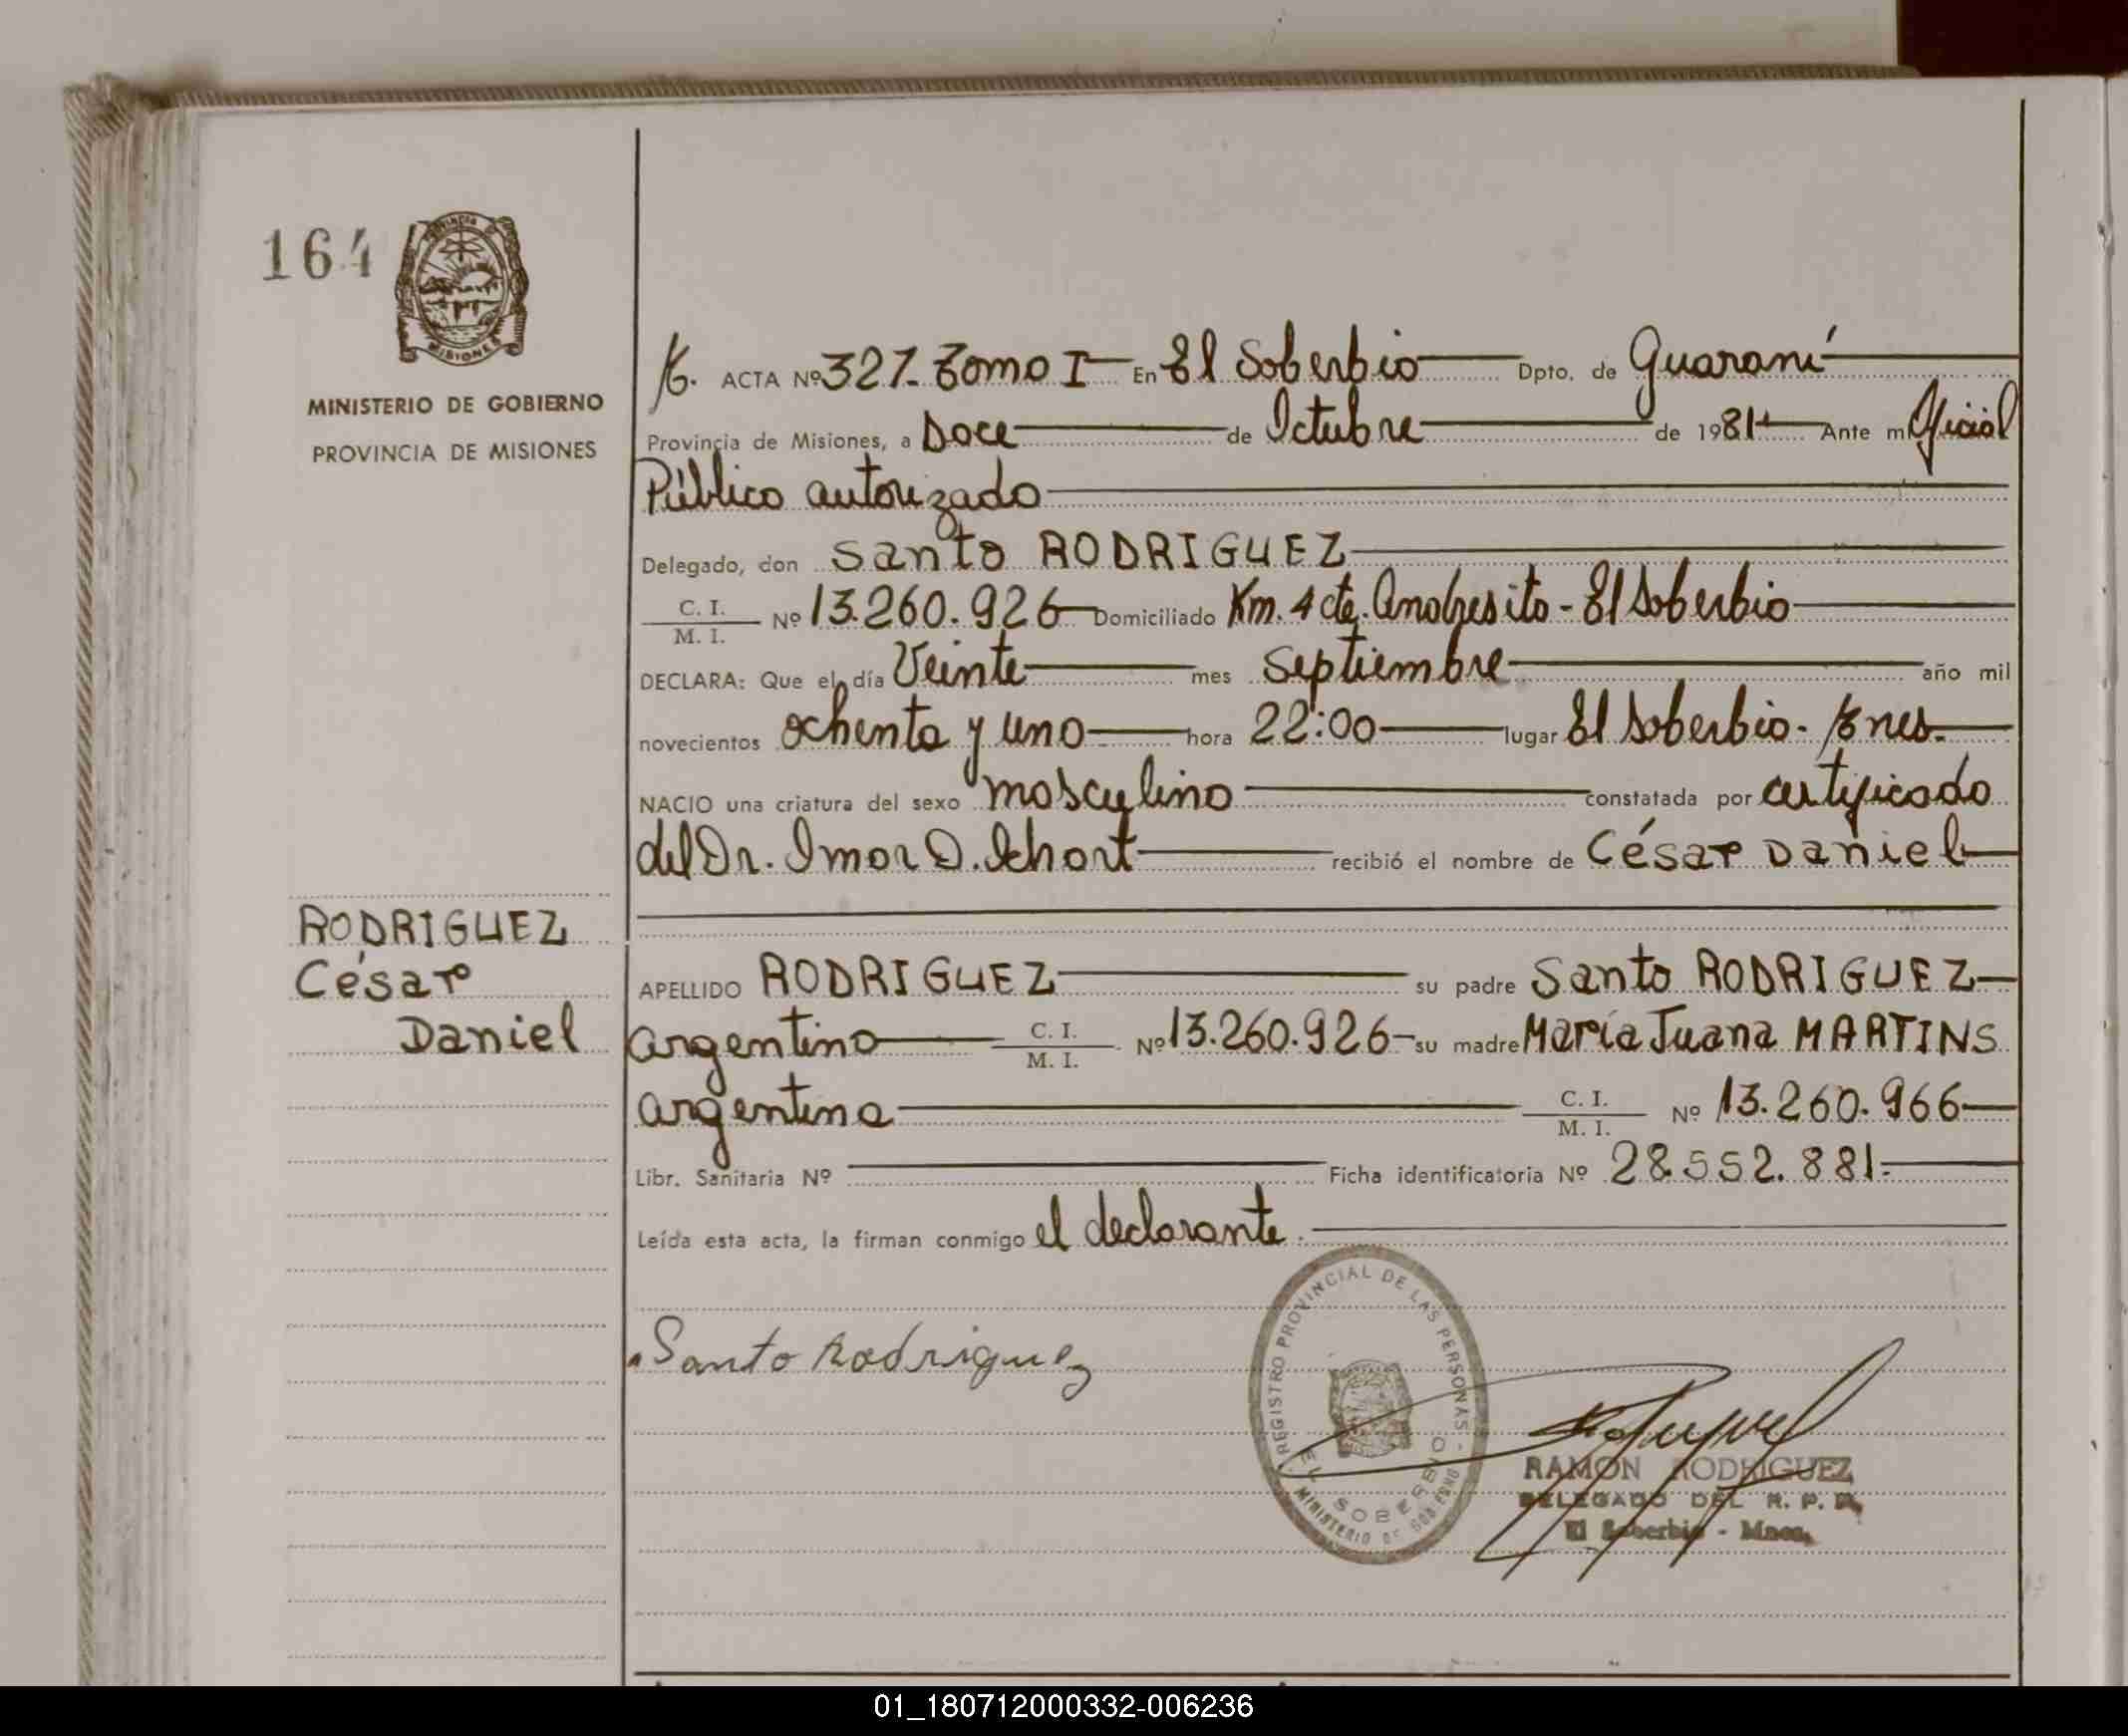 164
PROVINCIA DE
MISIONES
MINISTERIO DE GOBIERNO
PROVINCIA DE MISIONES
ACTA Nº 327. Tomo I En El Soberbio Dpto. de Guaraní
Provincia de Misiones, a Doce de Octubre de 1981 Ante mí Oficial
Público autorizado
Delegado, don Santo RODRIGUEZ
C. I.
M. I. Nº 13.260.926 Domiciliado Km. 4 cte. Andresito - El Soberbio
DECLARA: Que el día Veinte mes Septiembre año mil
novecientos ochenta y uno hora 22:00 lugar El Soberbio
NACIO una criatura del sexo masculino constatada por certificado
del Dr. D. recibió el nombre de César Daniel
RODRIGUEZ
César
Daniel
APELLIDO RODRIGUEZ su padre Santo RODRIGUEZ
argentino C. I.
M. I. Nº 13.260.926 su madre María Juana MARTINS
argentina C. I.
M. I. Nº 13.260.966
Libr. Sanitaria Nº Ficha identificatoria Nº 28.552.881.
Leída esta acta, la firman conmigo el declarante.
Santo Rodriguez
REGISTRO PROVINCIAL DE LAS PERSONAS
EL SOBERBIO
MINISTERIO DE GOBIERNO
RAMON RODRIGUEZ
DELEGADO DEL R. P. P.
El Soberbio - Mnes.
01_180712000332-006236